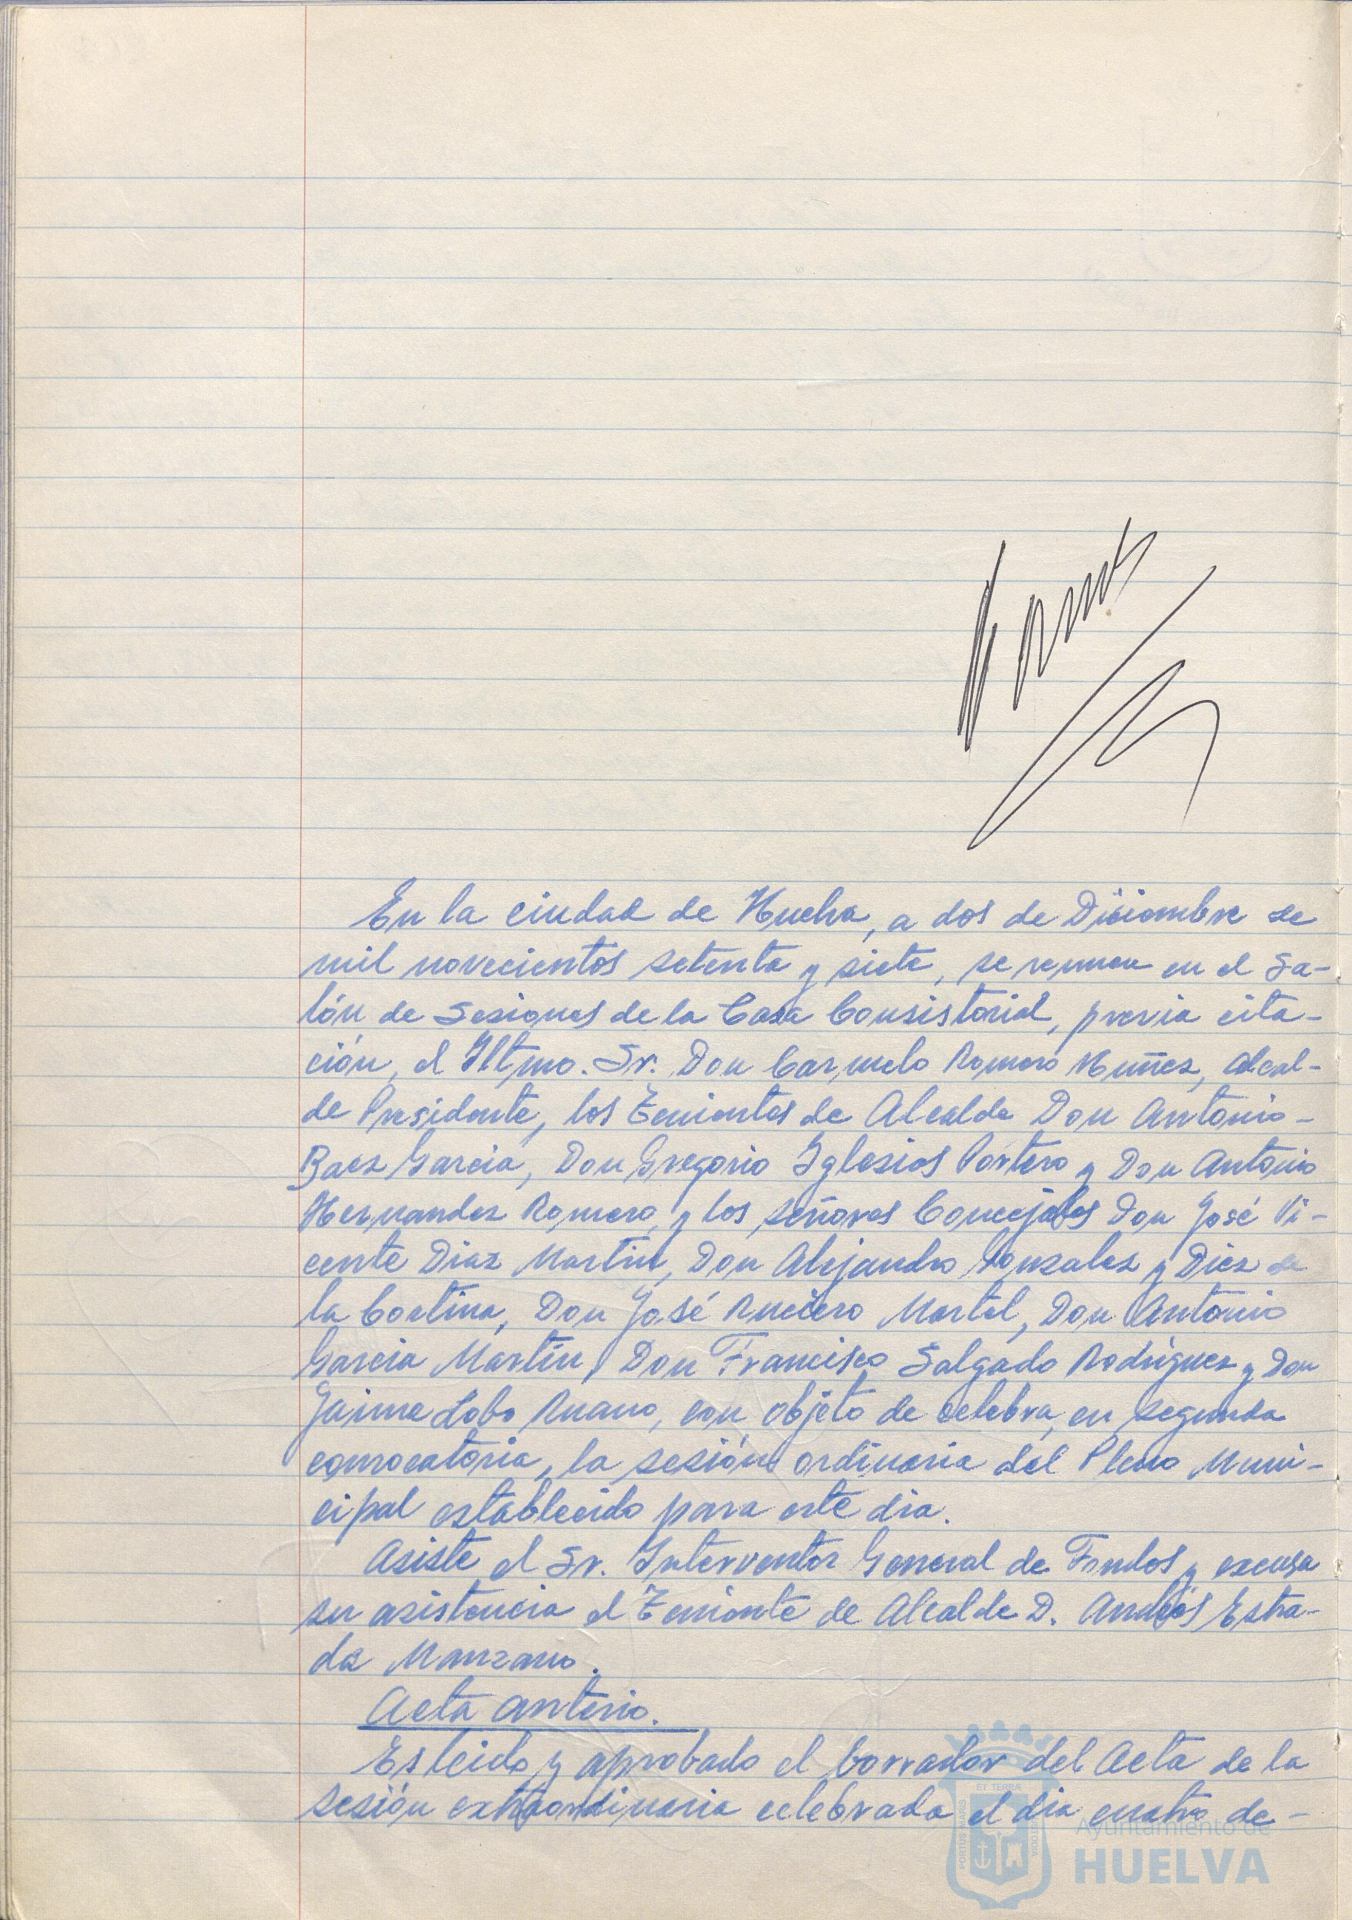 En la ciudad de Huelva, a dos de Diciembre de
mil novecientos setenta y siete, se reunen en el Sa-
lón de Sesiones de la Casa Consistorial, previa cita-
ción, el Iltmo. Sr. Don Carmelo Romero Nuñez, Alcal-
de Presidente, los Tenientes de Alcalde Don Antonio-
Baez Garcia, Don Gregorio Iglesias Portero y Don Antonio
Hernandez Romero, y los señores Concejales Don José Vi-
cente Diaz Martin, Don Alejandro Gonzalez y Diez de
la Cortina, Don José Rucero Martel, Don Antonio
Garcia Martín, Don Francisco Salgado Rodríguez y Don
Jaime Lobo Ruano, con objeto de celebra, en segunda
convocatoria, la sesión ordinaria del Pleno Muni-
cipal establecido para este dia.
Asiste el Sr. Interventor General de Fondos y excusa
su asistencia el Teniente de Alcalde D. Andrés Estra-
da Manzano.
Acta anterio.
Es leido y aprobado el borrador del Acta de la
sesión extraordinaria celebrada el dia cuatro de-
PORTUS MARIS ET TERRÆ CUSTODIA
Ayuntamiento de
HUELVA